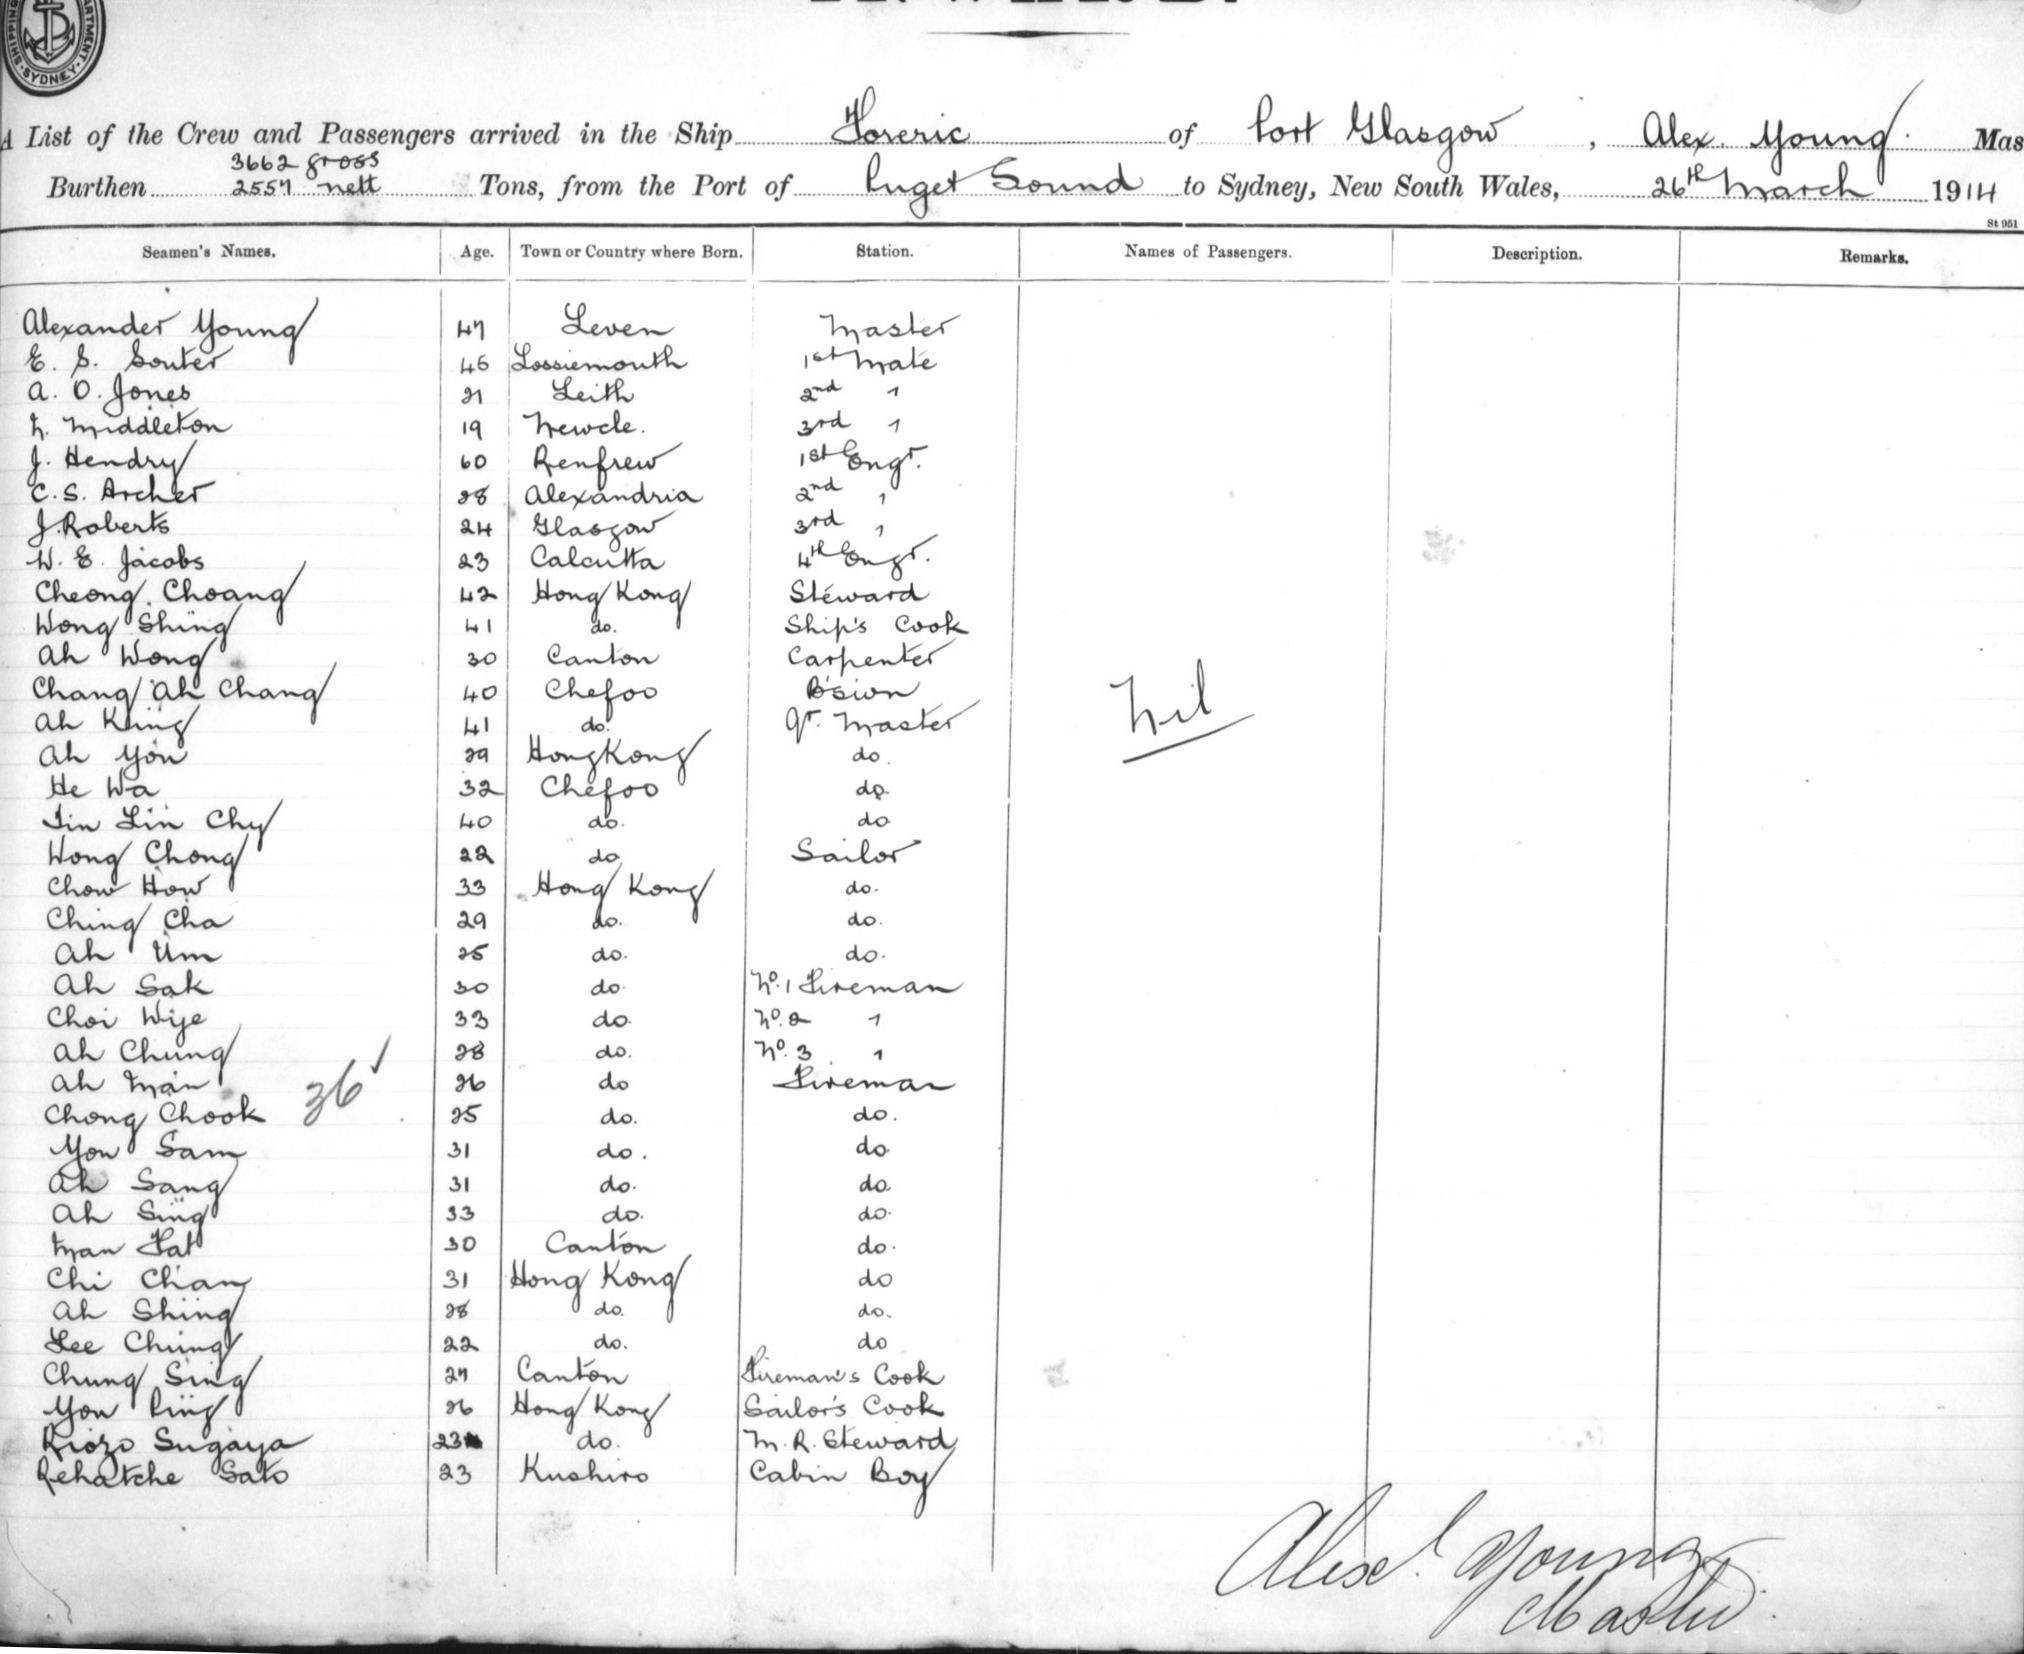 SHIPPING DEPARTMENT. SYDNEY.
A List of the Crew and Passengers arrived in the Ship Foreric of Port Glasgow, Alex. Young. Mas
3662 gross
Burthen 2557 nett Tons, from the Port of Puget Sound to Sydney, New South Wales, 26th March 1914
St 951
Seamen's Names. Age. Town or Country where Born. Station. Names of Passengers. Description. Remarks.
Alexander Young 47 Leven Master
E. S. Souter 45 Lossiemouth 1st Mate
A. O. Jones 21 Leith 2nd "
N. Middleton 19 Newcle. 3rd "
J. Hendry 60 Renfrew 1st Engr.
C. S. Archer 28 Alexandria 2nd "
J. Roberts 24 Glasgow 3rd "
W. E. Jacobs 23 Calcutta 4th Engr.
Cheong Choang 42 Hong Kong Steward
Wong Shing 41 do. Ship's Cook
Ah Wong 30 Canton Carpenter
Chang Ah Chang 40 Chefoo B'swn
Ah King 41 do. Qr. Master
Nil
Ah Yon 29 Hong Kong do.
He Wa 32 Chefoo do.
Lin Chy 40 do. do
Wong Chong 22 do Sailor
Chow How 33 Hong Kong do.
Ching Cha 29 do. do.
Ah Um 25 do. do.
Ah Sak 30 do. No. 1 Fireman
Choi Wye 33 do. No. 2 "
Ah Chung 28 do. No. 3 "
Ah Man 26 do Fireman
36 ✓
Chong Chook 25 do. do.
Yow Sam 31 do. do.
Ah Sang 31 do. do.
Ah Sing 33 do. do.
Man Fat 30 Canton do.
Chi Chan 31 Hong Kong do
Ah Shing 28 do. do.
Lee Chung 22 do. do
Chung Sing 27 Canton Fireman's Cook
Yow Ping 26 Hong Kong Sailor's Cook
Riozo Sugaya 23 do. M. R. Steward
Rehatche Sato 23 Kushiro Cabin Boy
Alexr. Young
Master